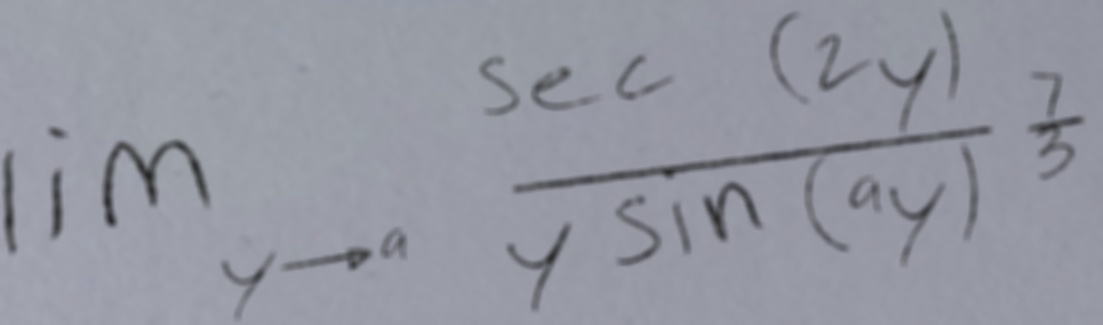 lim y→a sec (2y) / y sin (ay) 7/3